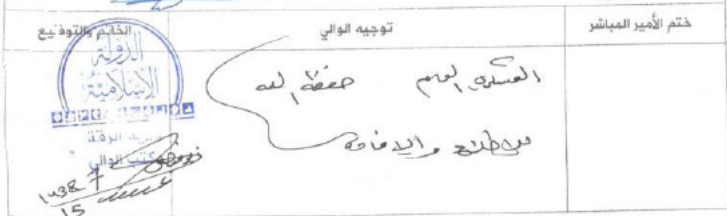 ختم الأمير المباشر
توجيه الوالي
الخاتم والتوقيع
العسكري العام حفظه الله
للاطلاع والإفادة
الدولة
الإسلامية
ولاية الرقة
مكتب الوالي
1438
15